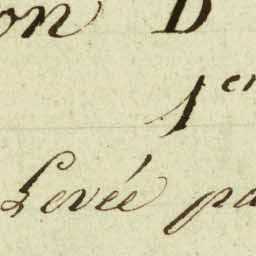 on D
1er
Levée pa